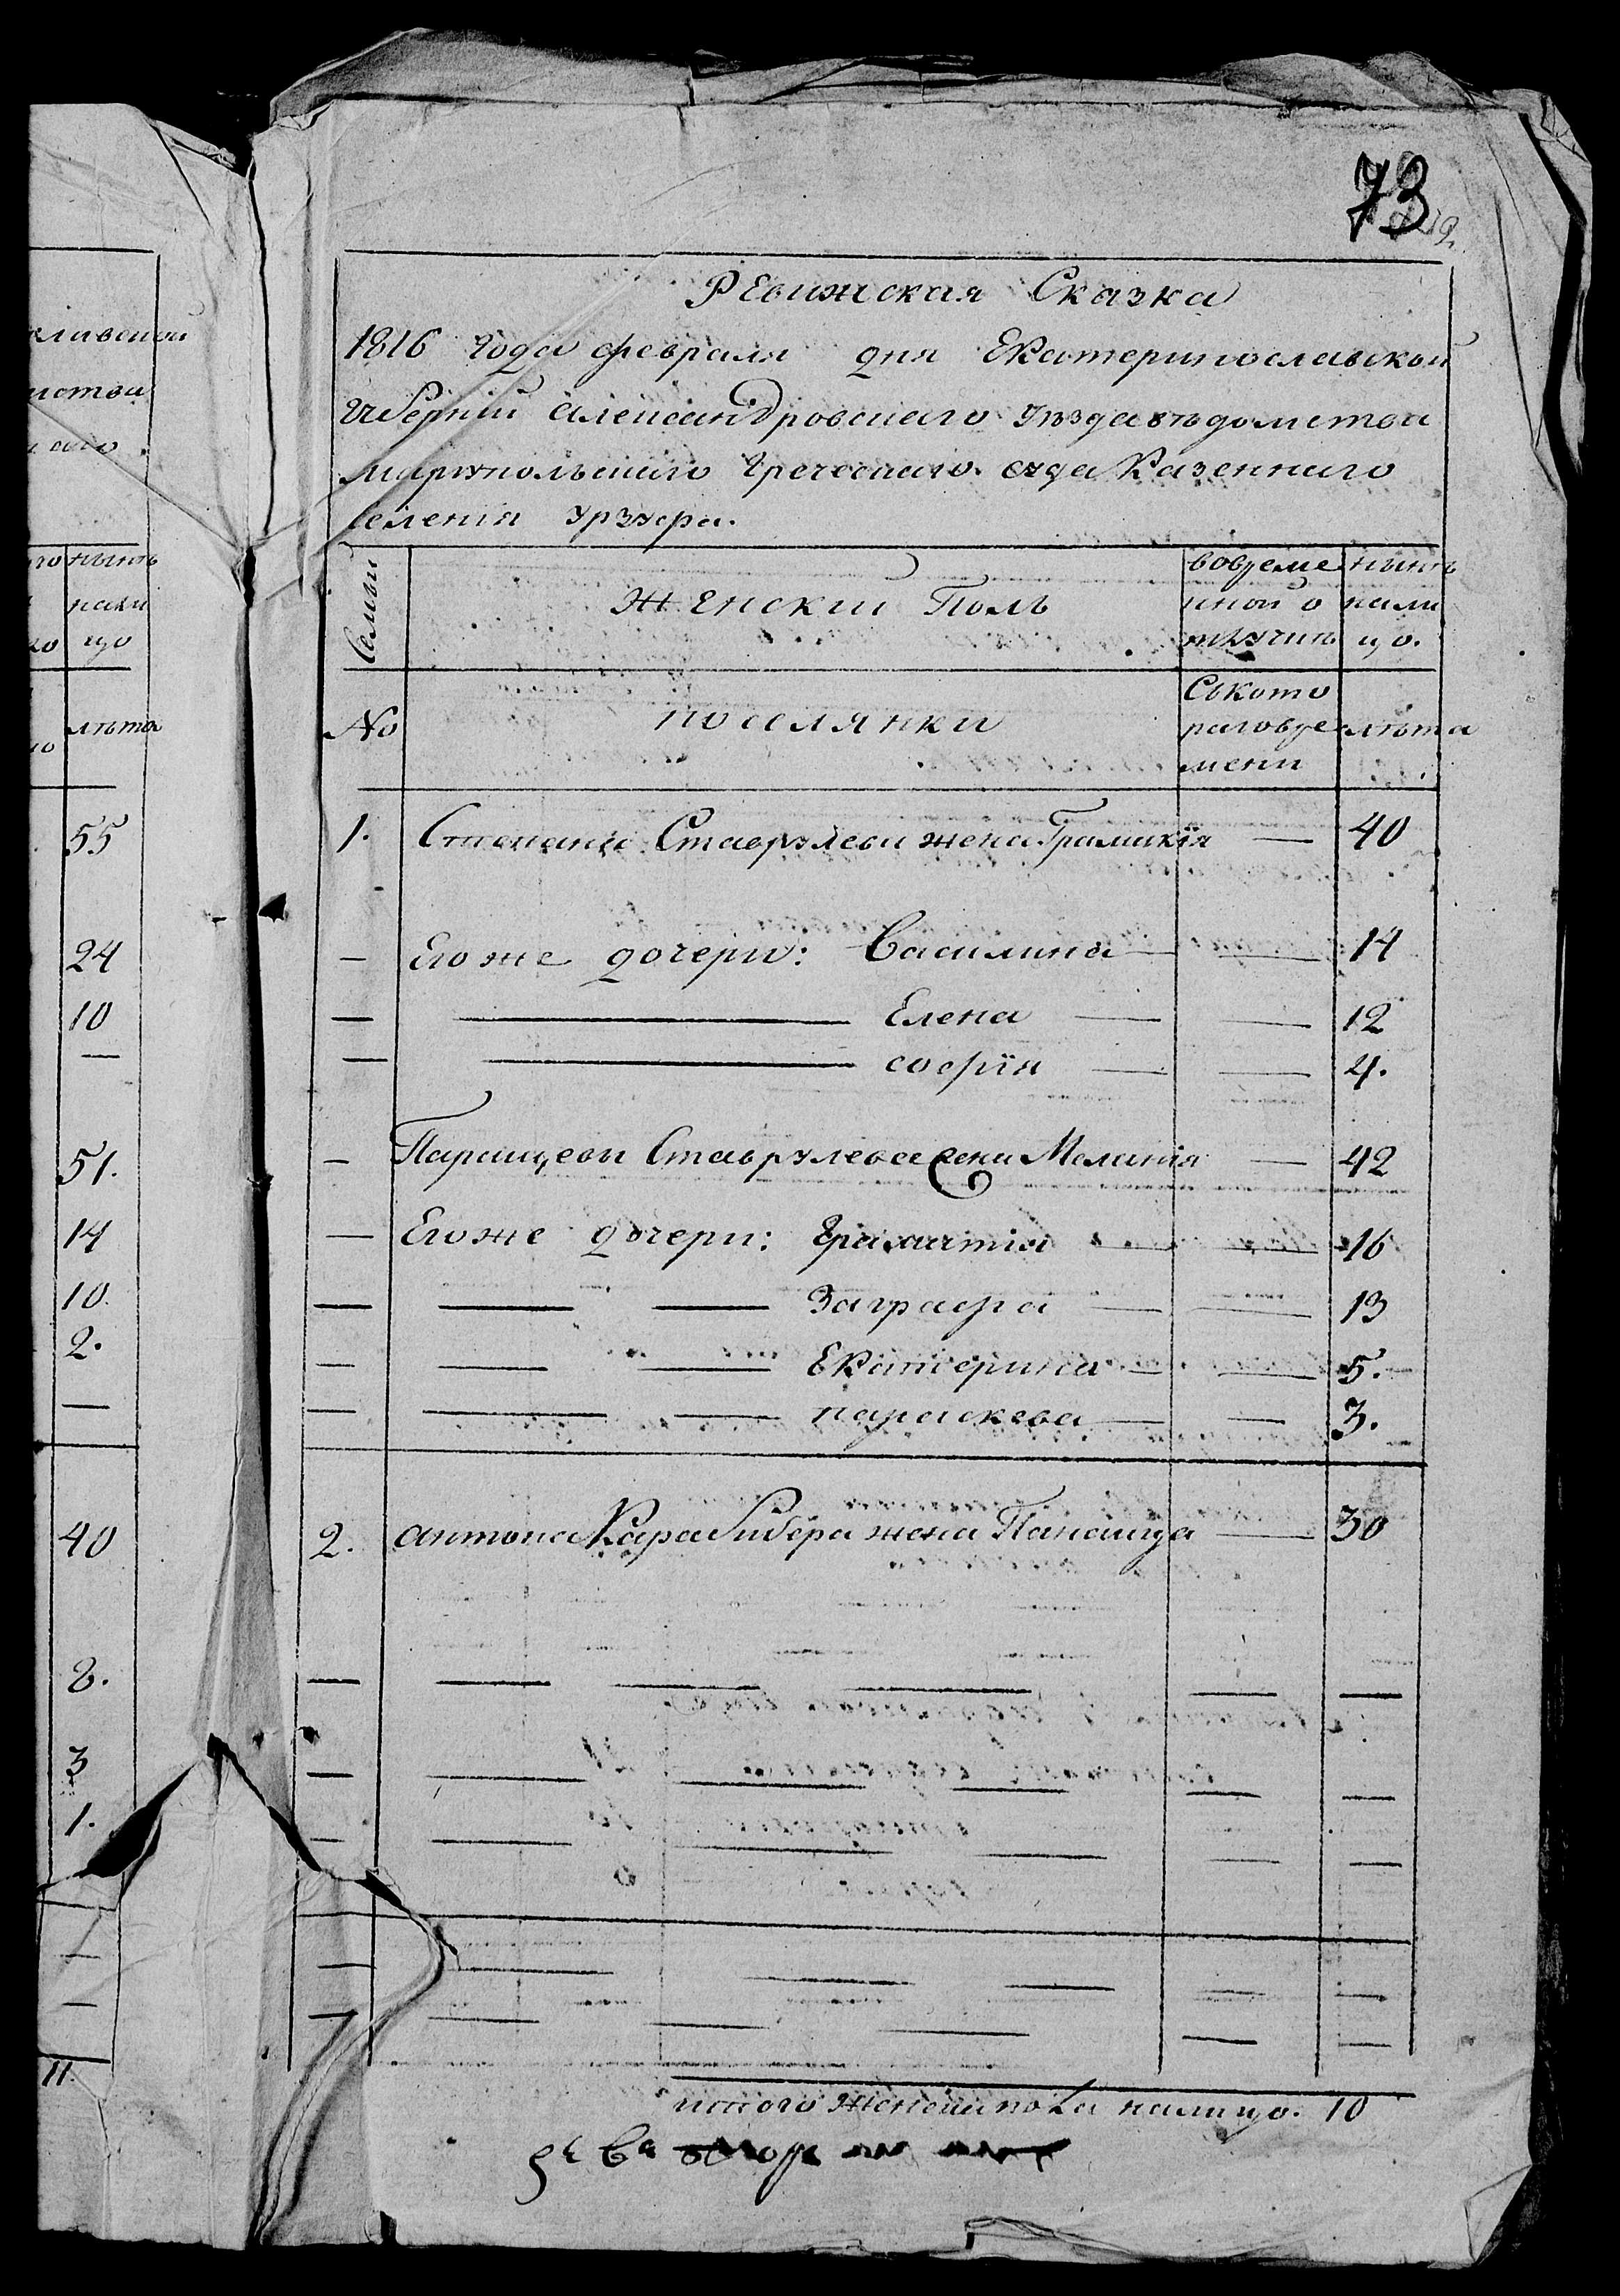 73
Ревижская Сказка
1816 года февраля дня Екатеринославской
Губерніи Александровскаго Уѣзда вѣдомства
Мариупольскаго Греческаго суда Казеннаго
селенія Урзуфа.
Семьи
Женскии Полъ
вовреме
нной о
тлучкѣ
нынѣ
нали
цо.
No
поселянки
Съкото
раговре
мени
лѣта
1. Степана Ставрулева жена Грамикія — 40
— Егоже дочери: Василина — — 14
— Елена — — 12
— софія — — 4.
— Ставрулева жена Меланія — 42
— Егоже дочери: — — 16
— Заграфа — — 13
— Екатерина — — 5.
— параскева — — 3.
2. антона Карабибера жена — 30
итого женска пола налицо. 10
нынѣ
нали
цо
лѣта
55
24
10
—
51.
14
10.
2.
—
40
8.
3
1.
11.